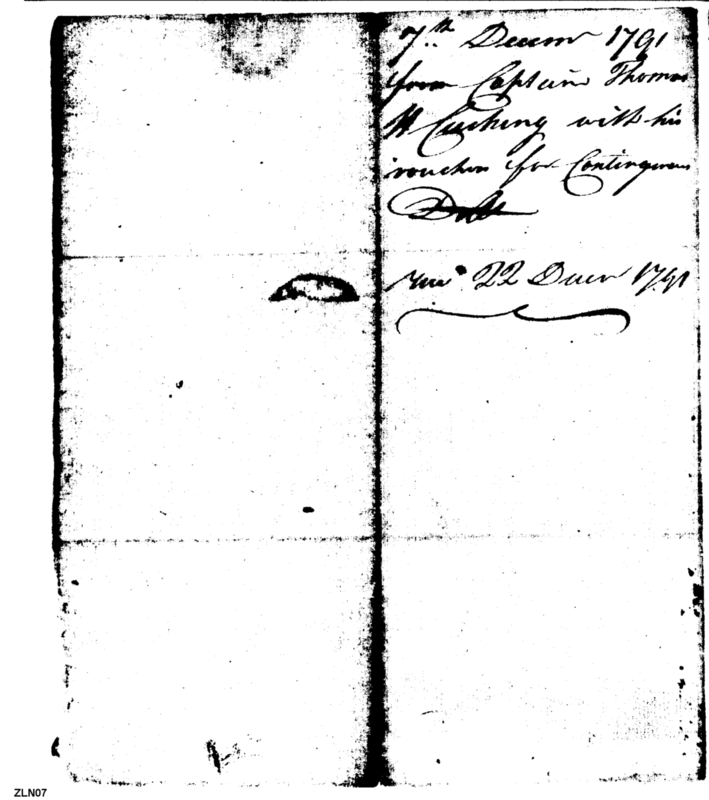 7th Decemr 1791
from Captain Thomas
H Cushing with his
vouchers for Contingences
Debt
Recd 22 Decr 1791
ZLN07